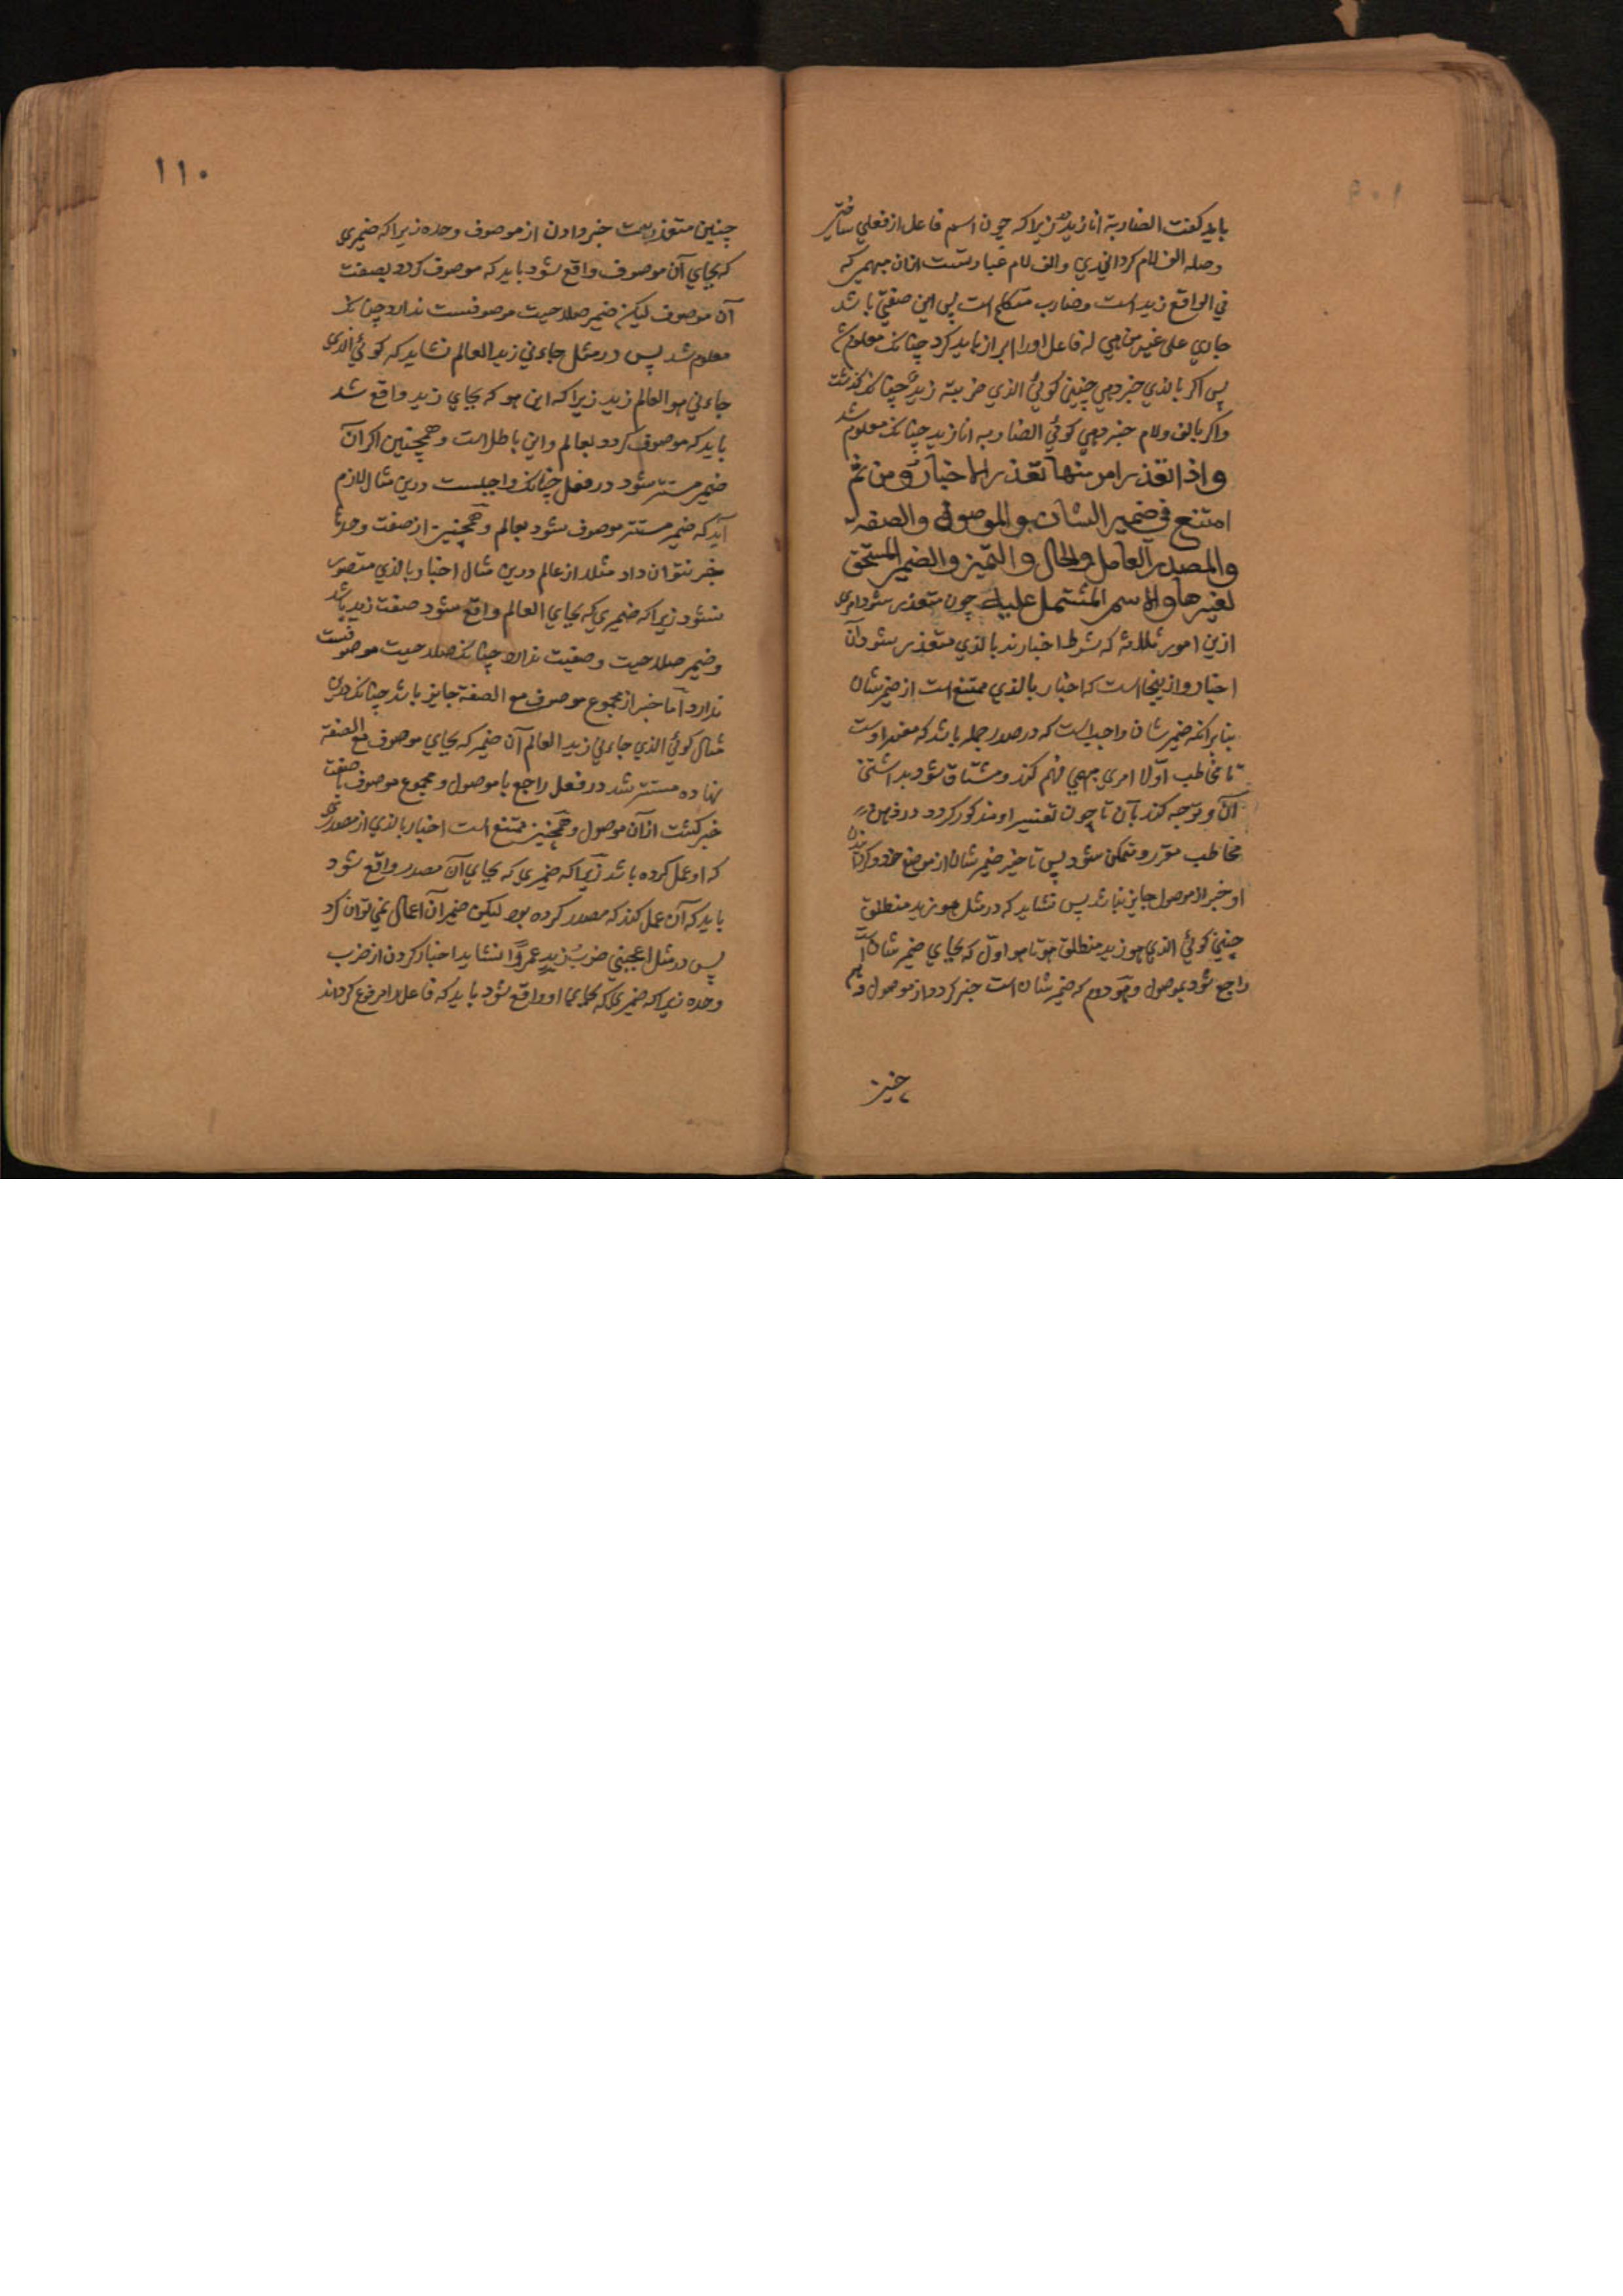 باید کفت الضاربه انا زید زیرا که چون اسم فاعل از فعلی ساختی
وصله الف لام کردانیدی والف لام عبارتست ازان مبهم که
في الواقع زید است وضارب متکلم است پس این صفتی باشد
جاري علی غیر من هي له فاعل اورا ابراز باید کرد چنانک معلوم شد
پس اکر بالذي خبر دهي چنین کوئي الذي ضربته زید چنانک کذشت
واکر بالف ولام خبر دهي کوئي الضاربه انا زید چنانک معلوم شد
واذا تعذر امر منها تعذر الاخبار ومن ثم
امتنع في ضمیر الشان والموصوف والصفة
والمصدر العامل والحال والتمیز والضمیر المستحق
لغیرها والاسم المشتمل علیه چون متعذر شود امری
ازین امور ثلاثه که شرط اخبارند بالذي متعذر شود آن
اخبار وازینجا است که اخبار بالذي ممتنع است از ضمیر شان
بنابرانکه ضمیر شان واجبست که در صدر جمله باشد که مفسر اوست
تا مخاطب اولا امری مبهم فهم کند ومشتاق شود بدانستن
آن وتوجه کند بآن تا چون تفسیر او مذکور کردد در ذهن
مخاطب مقرر ومتمکن شود پس تاخیر ضمیر شان از موضع خود وکردانیدن
او خبر از موصول جایز نباشد پس نشاید که در مثل هو زید منطلق
چنین کوئي الذي هو زید منطلق هو تا هو اول که بجاي ضمیر شان است
راجع شود بموصول وهو دوم که ضمیر شان است خبر کردد از موصول و
چنین
١١٠
چنین متعذر است خبر دادن از موصوف وحده زیرا که ضمیری
که بجاي آن موصوف واقع شود باید که موصوف کردد بصفت
آن موصوف لیکن ضمیر صلاحیت موصوفیت ندارد چنانک
معلوم شد پس در مثل جاءني زید العالم نشاید که کوئي الذي
جاءني هو العالم زید زیرا که این هو که بجاي زید واقع شد
باید که موصوف کردد بعالم واین باطلست وهمچنین اکر آن
ضمیر مستتر شود در فعل چنانک واجبست درین مثال لازم
آید که ضمیر مستتر موصوف شود بعالم وهمچنین از صفت وحدها
خبر نتوان داد مثلا از عالم درین مثال اخبار بالذي متصور
نشود زیرا که ضمیري که بجاي العالم واقع شود صفت زید باشد
وضمیر صلاحیت وصفیت ندارد چنانک صلاحیت موصوفیت
ندارد اما خبر از مجموع موصوف مع الصفة جایز باشد چنانک درین
مثال کوئي الذي جاءني زید العالم آن ضمیر که بجاي موصوف مع الصفة
نهاده مستتر شد در فعل راجع با موصول ومجموع موصوف با صفت
خبر کشت از آن موصول وهمچنین ممتنع است اخبار بالذي از مصدری
که او عمل کرده باشد زیرا که ضمیری که بجاي آن مصدر واقع شود
باید که آن عمل کند که مصدر کرده بود لیکن ضمیر آن اعمال نمي توان کرد
پس در مثل اعجبني ضرب زید عمروا نشاید اخبار کردن از ضرب
وحده زیرا که ضمیری که بجاي او واقع شود باید که فاعل را مرفوع کرداند